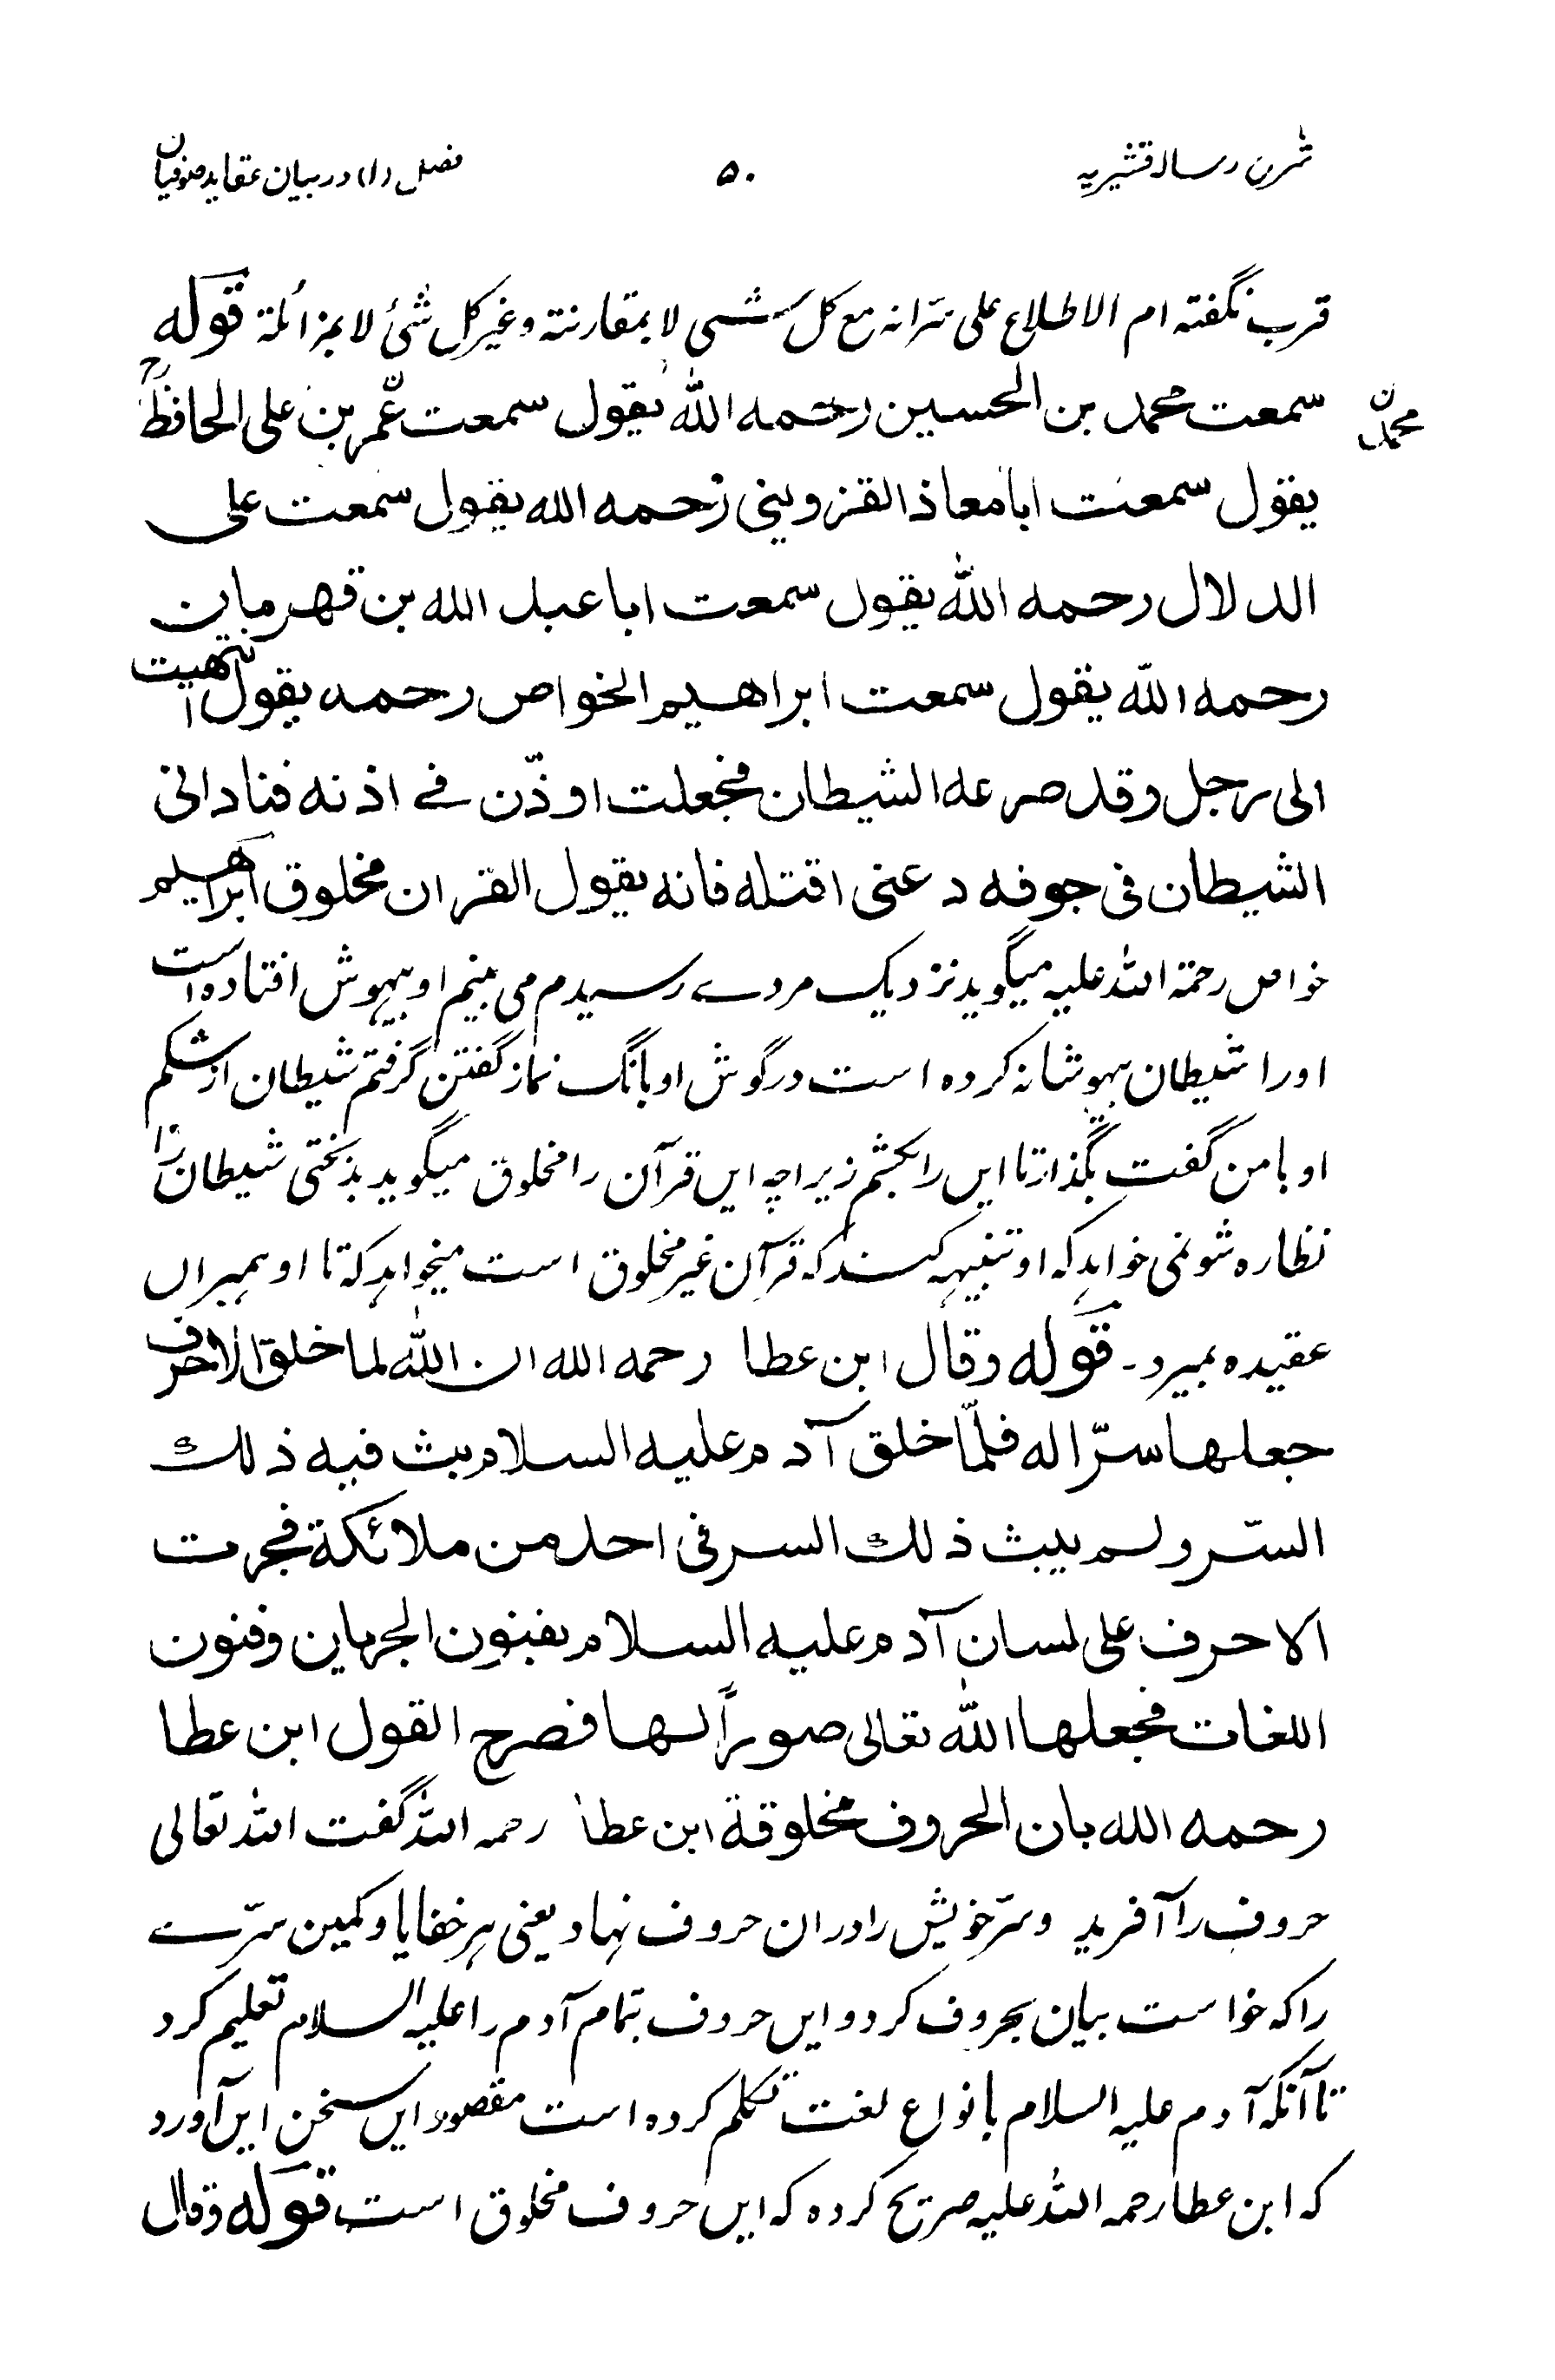 شرح رسالہ قشیریہ ۵۰ فصل (۱) در بیان عقاید صوفیان
قرب نگفته ام الاطلاع علی سر انہ مع کل شئی لا بمقارنتہ و غیر کل شئ لا بمزائلۃ قوله
سمعت محمد بن الحسین رحمه الله یقول سمعت عمر بن علی الحافظ رح
محمد ن
یقول سمعت ابا معاذ القزوینی رحمه الله یقول سمعت علی
الدلال رحمه الله یقول سمعت ابا عبد الله بن قهرمابن
رحمه الله یقول سمعت ابراهیم الخواص رحمه یقول انتهیت
الی رجل وقد صرعه الشیطان فجعلت اوذّن فے اذنه فنادانی
الشیطان فی جوفه دعنی اقتله فانه یقول القران مخلوق ابراهیم
خواص رحمۃ اللہ علیہ میگوید نزدیک مردے رسیدم می بینم او بیہوش افتادہ است
اورا شیطان بیہوشانہ کردہ است در گوش او بانگ نماز گفتن گرفتم شیطان از شکم
او با من گفت بگذار تا ایں را بکشم زیراچہ ایں قرآن را مخلوق میگوید بدبختی شیطان را
نظارہ شو نمی خواہد کہ او تنبیہہ کند کہ قرآن غیر مخلوق است میخواہد کہ تا او ہمبراں
عقیدہ بمیرد۔ قوله وقال ابن عطا رحمه الله ان الله لما خلق الاحرف
جعلها سرّا له فلمّا خلق آدم علیه السلام بث فیه ذلك
السّر ولم یبث ذلك السر فی احد من ملائکة فجرت
الاحرف علی لسان آدم علیه السلام بفنون الجریان وفنون
اللغات فجعلها الله تعالی صوراً لها فصرح القول ابن عطا
رحمه الله بان الحروف مخلوقة ابن عطا رحمہ اللہ گفت اللہ تعالی
حروف را آفرید و سرّ خویش را دران حروف نہاد یعنی ہر خفایا و کمین سرّے
را کہ خواست بیان بحروف کرد و ایں حروف بتمام آدم را علیہ السلام تعلیم کرد
تا آنکہ آدم علیہ السلام بانواع لغت تکلم کردہ است مقصود ایں سخن ایں آورد
کہ ابن عطا رحمہ اللہ علیہ صریح کردہ کہ ایں حروف مخلوق است قوله وقال